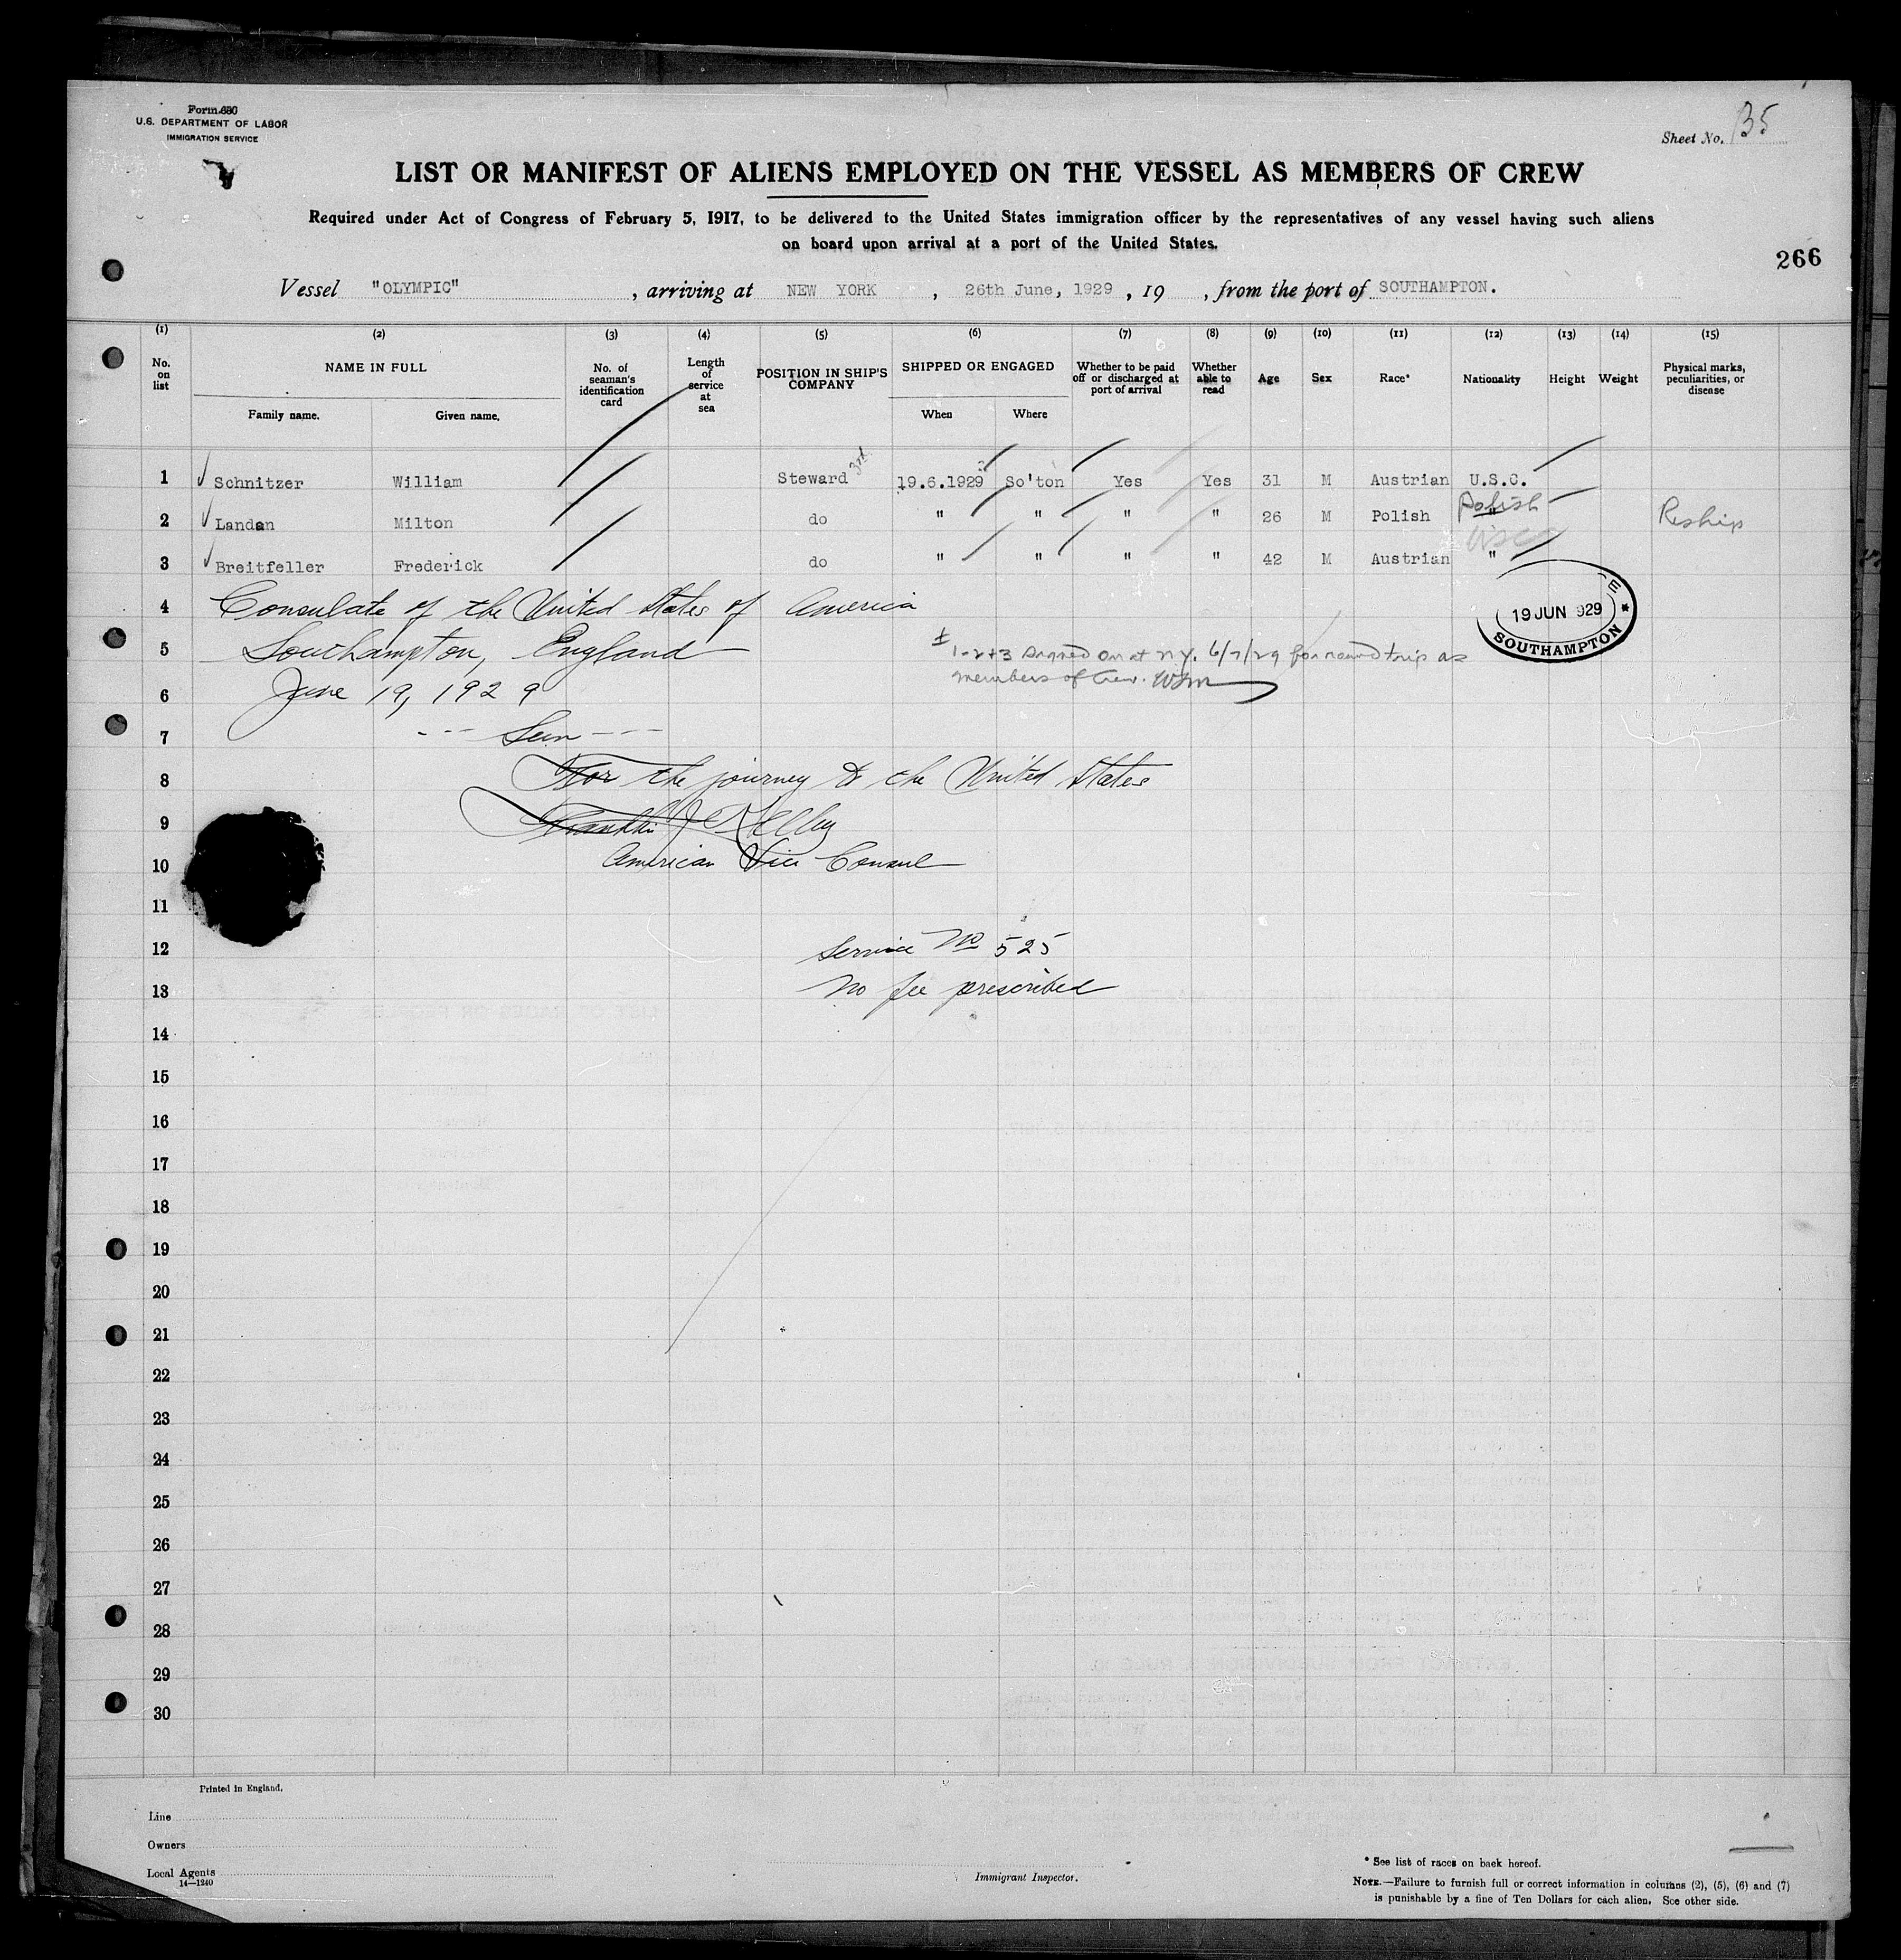 Form 680
U.S. DEPARTMENT OF LABOR
IMMIGRATION SERVICE
Sheet No. 35
LIST OR MANIFEST OF ALIENS EMPLOYED ON THE VESSEL AS MEMBERS OF CREW
Required under Act of Congress of February 5, 1917, to be delivered to the United States immigration officer by the representatives of any vessel having such aliens
on board upon arrival at a port of the United States.
266
Vessel "OLYMPIC" , arriving at NEW YORK , 26th June, 1929 , 19 , from the port of SOUTHAMPTON.
(1) (2) (3) (4) (5) (6) (7) (8) (9) (10) (11) (12) (13) (14) (15)
No. on list NAME IN FULL Family name. Given name. No. of seaman's identification card Length of service at sea POSITION IN SHIP'S COMPANY SHIPPED OR ENGAGED When Where Whether to be paid off or discharged at port of arrival Whether able to read Age Sex Race* Nationality Height Weight Physical marks, peculiarities, or disease
1 Schnitzer William Steward 3rd 19.6.1929 So'ton Yes Yes 31 M Austrian U.S.C.
2 Landan Milton do " " " " 26 M Polish Polish " Reship
U.S.C.
3 Breitfeller Frederick do " " " " 42 M Austrian "
19 JUN 929
SOUTHAMPTON
4 Consulate of the United States of America
5 Southampton, England
1-2+3 signed on at N.Y. 6/7/29 for round trip as
members of Crew. WSM
6 June 19, 1929
7 --- Seen ---
8 For the journey to the United States
9 Franklin J Kelley
10 American Vice Consul
11
12 Service No 525
13 No fee prescribed
14
15
16
17
18
19
20
21
22
23
24
25
26
27
28
29
30
Printed in England.
Line
Owners
Local Agents
14—1240
Immigrant Inspector.
* See list of races on back hereof.
NOTE.—Failure to furnish full or correct information in columns (2), (5), (6) and (7)
is punishable by a fine of Ten Dollars for each alien. See other side.